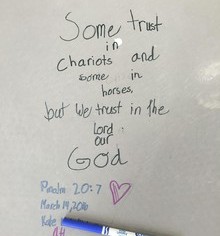 Some trust
in
chariots and
some in
horses,
but we trust in the
Lord
our
God
Psalm 20:7
March 14, 2016
Kate